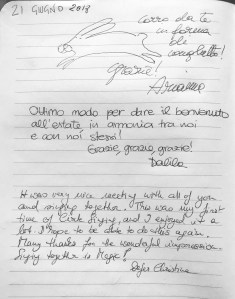 21 GIUGNO 2018
corro da te
in forma
di coniglietto!
grazie!
Arianna
Ottimo modo per dare il benvenuto
all'estate, in armonia tra noi
e con noi stessi!
Grazie, grazie, grazie!
Dalila
It was very nice meeting with all of you
and singing together. This was my first
time of Circle Singing, and I enjoyed it a
lot I hope to be able to do this again.
Many thanks for the wonderful improvvision.
Singing together is Magic!
Christina